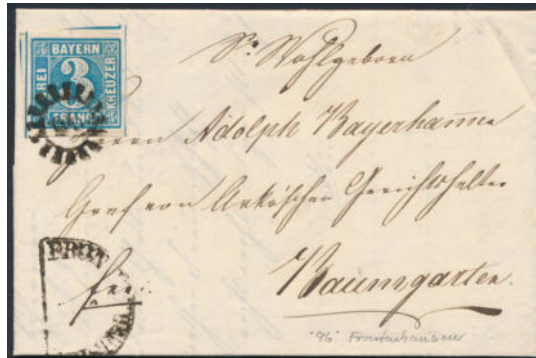 BAYERN
3
FREI
KREUZER
FRANCO
Sr. Wohlgeboren
Herrn Adolph Bayerhamme
Graf von Arkóschen Gerichtshalter
Baumgarten.
frei.
FRONT
"96" Frontenhausen